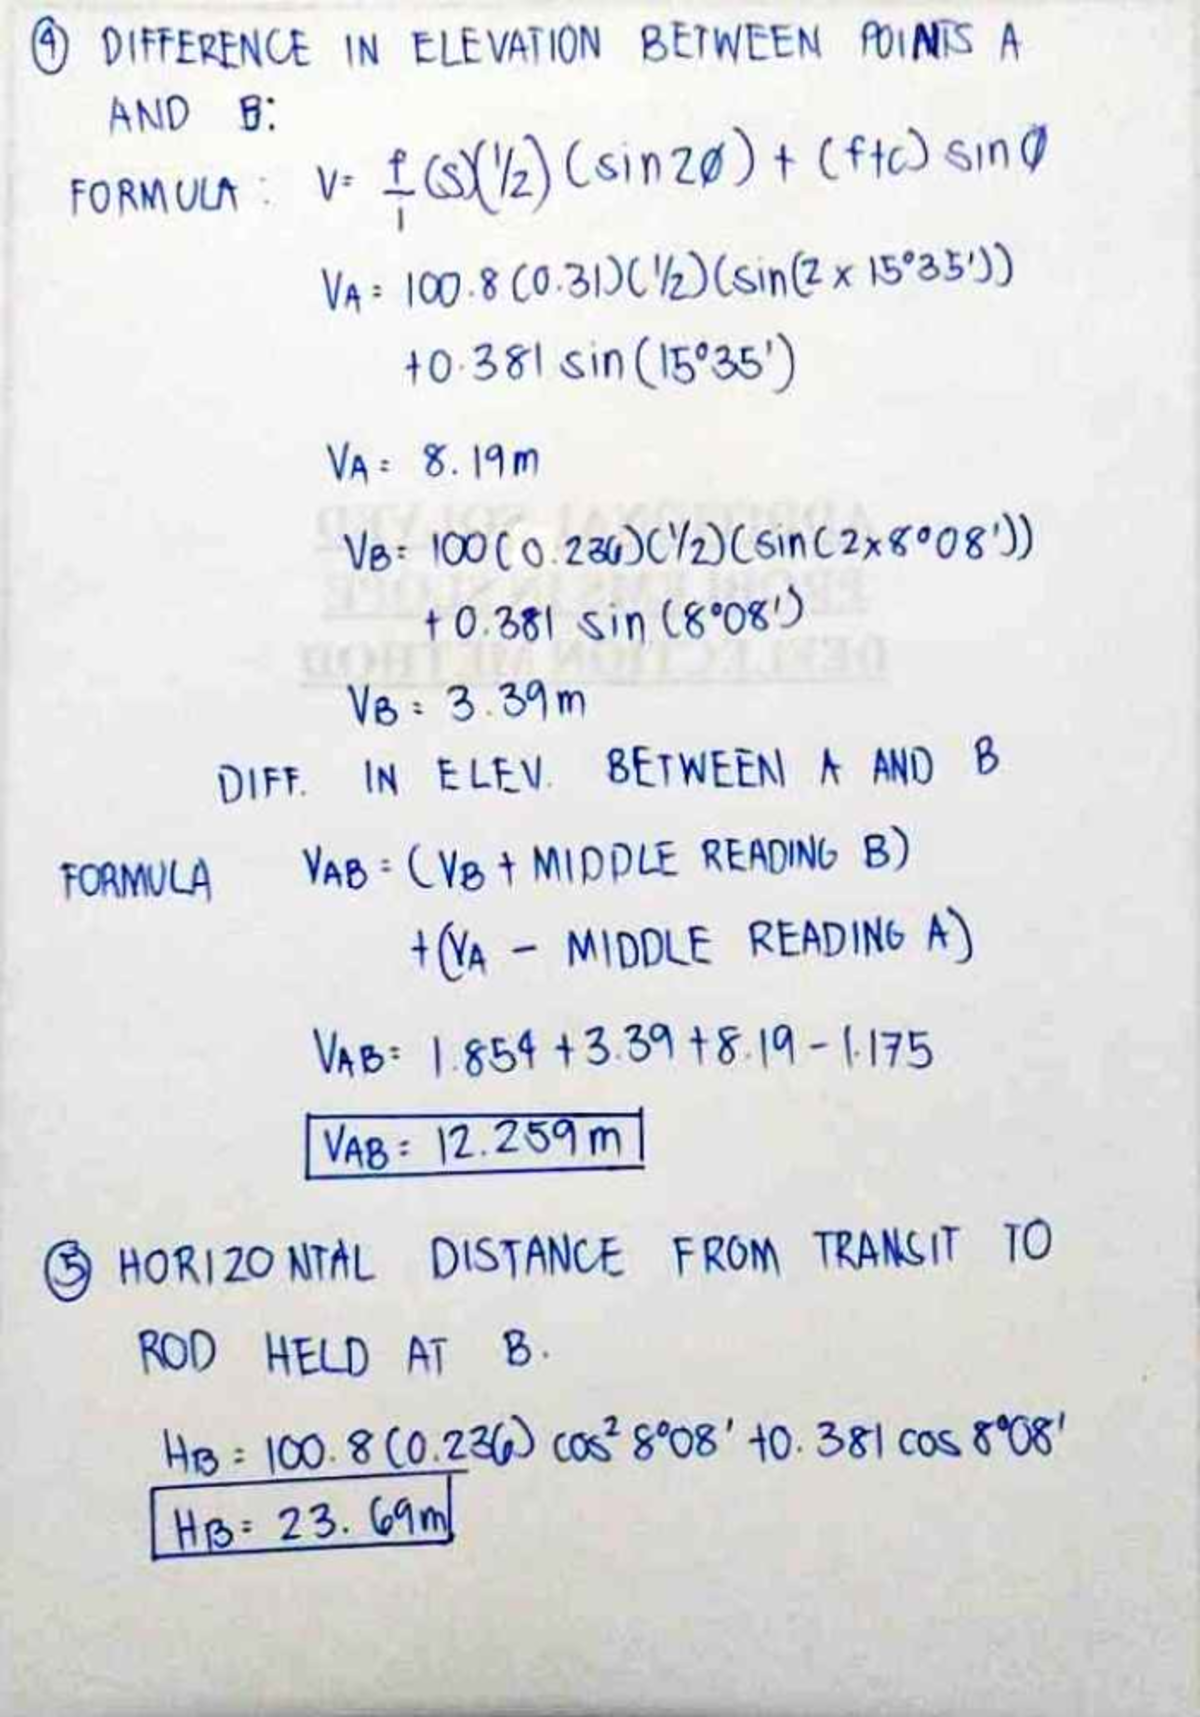 ④ DIFFERENCE IN ELEVATION BETWEEN POINTS A
AND B:
FORMULA: V= f/i (s)(1/2) (sin2ø) + (f+c) sin ø
VA = 100.8 (0.31)(1/2)(sin(2 x 15°35'))
+0.381 sin (15°35')
VA = 8.19m
VB = 100(0.236)(1/2)(sin(2x8°08'))
+ 0.381 sin (8°08')
VB = 3.39m
DIFF. IN ELEV. BETWEEN A AND B
FORMULA VAB = (VB + MIDDLE READING B)
+ (VA - MIDDLE READING A)
VAB = 1.854 + 3.39 + 8.19 - 1.175
VAB = 12.259m
⑤ HORIZONTAL DISTANCE FROM TRANSIT TO
ROD HELD AT B.
HB = 100.8 (0.236) cos² 8°08' + 0.381 cos 8°08'
HB = 23.69m
ADDITIONAL SOLVED
PROBLEMS IN SLOPE
DEFLECTION METHOD